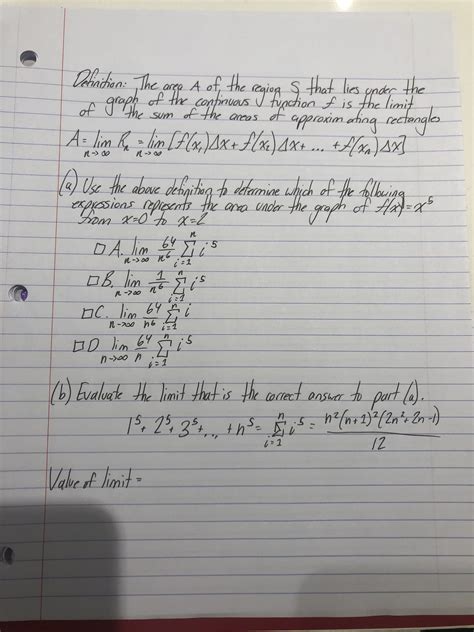 Definition: The area A of the region S that lies under the
graph of the continuous function f is the limit
of the sum of the areas of approximating rectangles
A = lim n→∞ Rₙ = lim n→∞ [f(x₁)Δx + f(x₂)Δx + ... + f(xₙ)Δx]
(a) Use the above definition to determine which of the following
expressions represents the area under the graph of f(x)=x⁵
from x=0 to x=2
□ A. lim n→∞ 64/n⁶ Σ i=1 n i⁵
□ B. lim n→∞ 1/n⁶ Σ i=1 n i⁵
□ C. lim n→∞ 64/n⁶ Σ i=1 n i
□ D lim n→∞ 64/n Σ i=1 n i⁵
(b) Evaluate the limit that is the correct answer to part (a).
1⁵+ 2⁵+ 3⁵+ ... + n⁵ = Σ i=1 n i⁵ = n²(n+1)²(2n²+2n-1)/12
Value of limit =